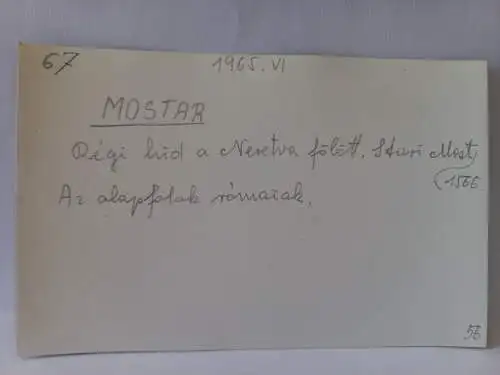 67
1965. VI
MOSTAR
Régi híd a Neretva fölött. Stari Most,
1566
Az alapfalak rómaiak.
56